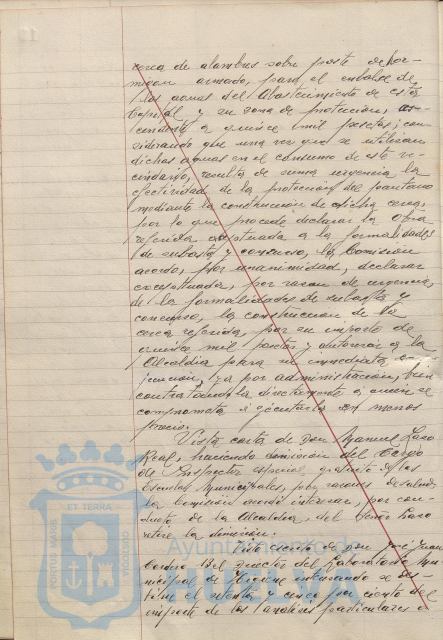 cerca de alambres sobre poste de hor-
migon armado, para el embalse de
las aguas del Abastecimiento de esta
Capital y su zona de protección, as-
cendente a quince mil pesetas; con-
siderando que una vez que se utilizan
dichas aguas en el consumo de este ve-
cindario, resulta de suma urgencia la
efectividad de la protección del pantano
mediante la construcción de dicha cerca,
por lo que procede declarar la obra
referida exceptuada a las formalidades
de subasta y concurso, la Comisión
acordó, por unanimidad, declarar
exceptuada, por razon de urgencia,
de las formalidades de subasta y
concurso, la construccion de la
cerca referida, por su importe de
quince mil pesetas y autorizar a la
Alcaldía para su inmediata
ejecución, ya por administración, bien
contratandola directamente a quien se
comprometa a ejecutarla en menos
precio.
Vista carta de Don Manuel Lazo
Real, haciendo dimisión del Cargo
de Inspector de las
Escuelas Municipales, por razones de salud,
la Comisión acordó interesar, por con-
ducto de la Alcaldía, del Señor Lazo
retire la dimisión.
Visto escrito de Don José Juan
Director del Laboratorio Mu-
nicipal de Higiene interesando se des-
tine el por ciento del
importe de los análisis particulares a
Ayuntamiento de
HUELVA
PORTUS MARIS ET TERRAE CUSTODIA